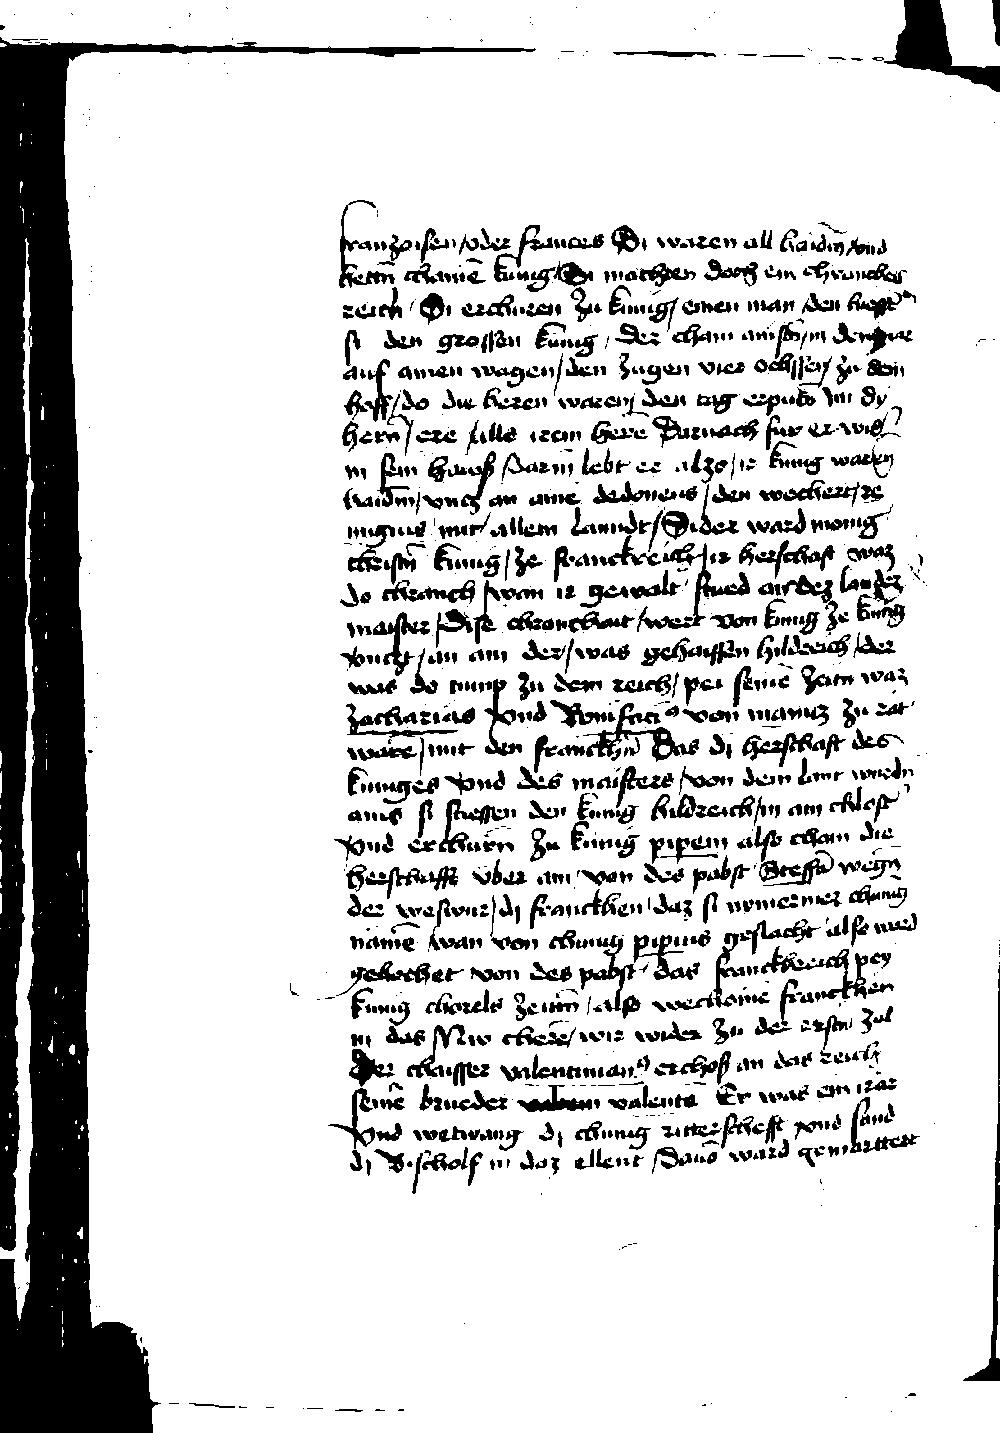 franzoisen / oder frances Di waren all haidñ / vnd
hettñ chainē kunig / Di machten doch ein chranches
reich / Di erchuren zu kunig / einen man / den hiess
si den grossen kunig / der cham in dem iar
auf ainen wagen / den zugen vier ochssen / zu dem
hoff / do die heren waren / den tag erputō im dy
herñ / ere / alls irem herē Darnach fur er wid
in sein haws / Darin lebt er alzo / ir kunig waren
haidñ / vncz an aine dedoneus / den wechert / re
migius mit allem lanndt / Sider ward monig
christñ kunig / ze franckreich / ir herschaft waz
do chranch / wan ir gewalt stued an dez landez
maister / Dise chranchait / wert von kunig ze kunig
vnczt / an ain der / was gehaissen hildreich / der
was do tump zu dem reich / pei seinē zeitn waz
zacharias vnd Bonifaciꝰ von maincz zu rat
ware / mit den franckhñ Das di herschaft des
kuniges vnd des maisters / von dem lant wurdn
ains si stiessen den kunig hildreich / in ain chlost
vnd erchurñ zu kunig pipein also cham die
herschafft vber ain von des pabst Steffā wegn
der weswur / di franckhen daz si nimermer chunig
namē wan von chunig pipins geslacht also ward
gehochet von des pabst das franckhreich pey
kunig chorels zeitñ / also wechome franckhen
in das Nw cherē / wir wider zu der erstn zal
Der chaisser valentinianꝰ erchoß an das reich
seinē brueder valentē Er was ein irar
vnd wetwang di chunig ritterschefft vnd sand
di Bischolf in daz ellent / Dauō ward gemarttert